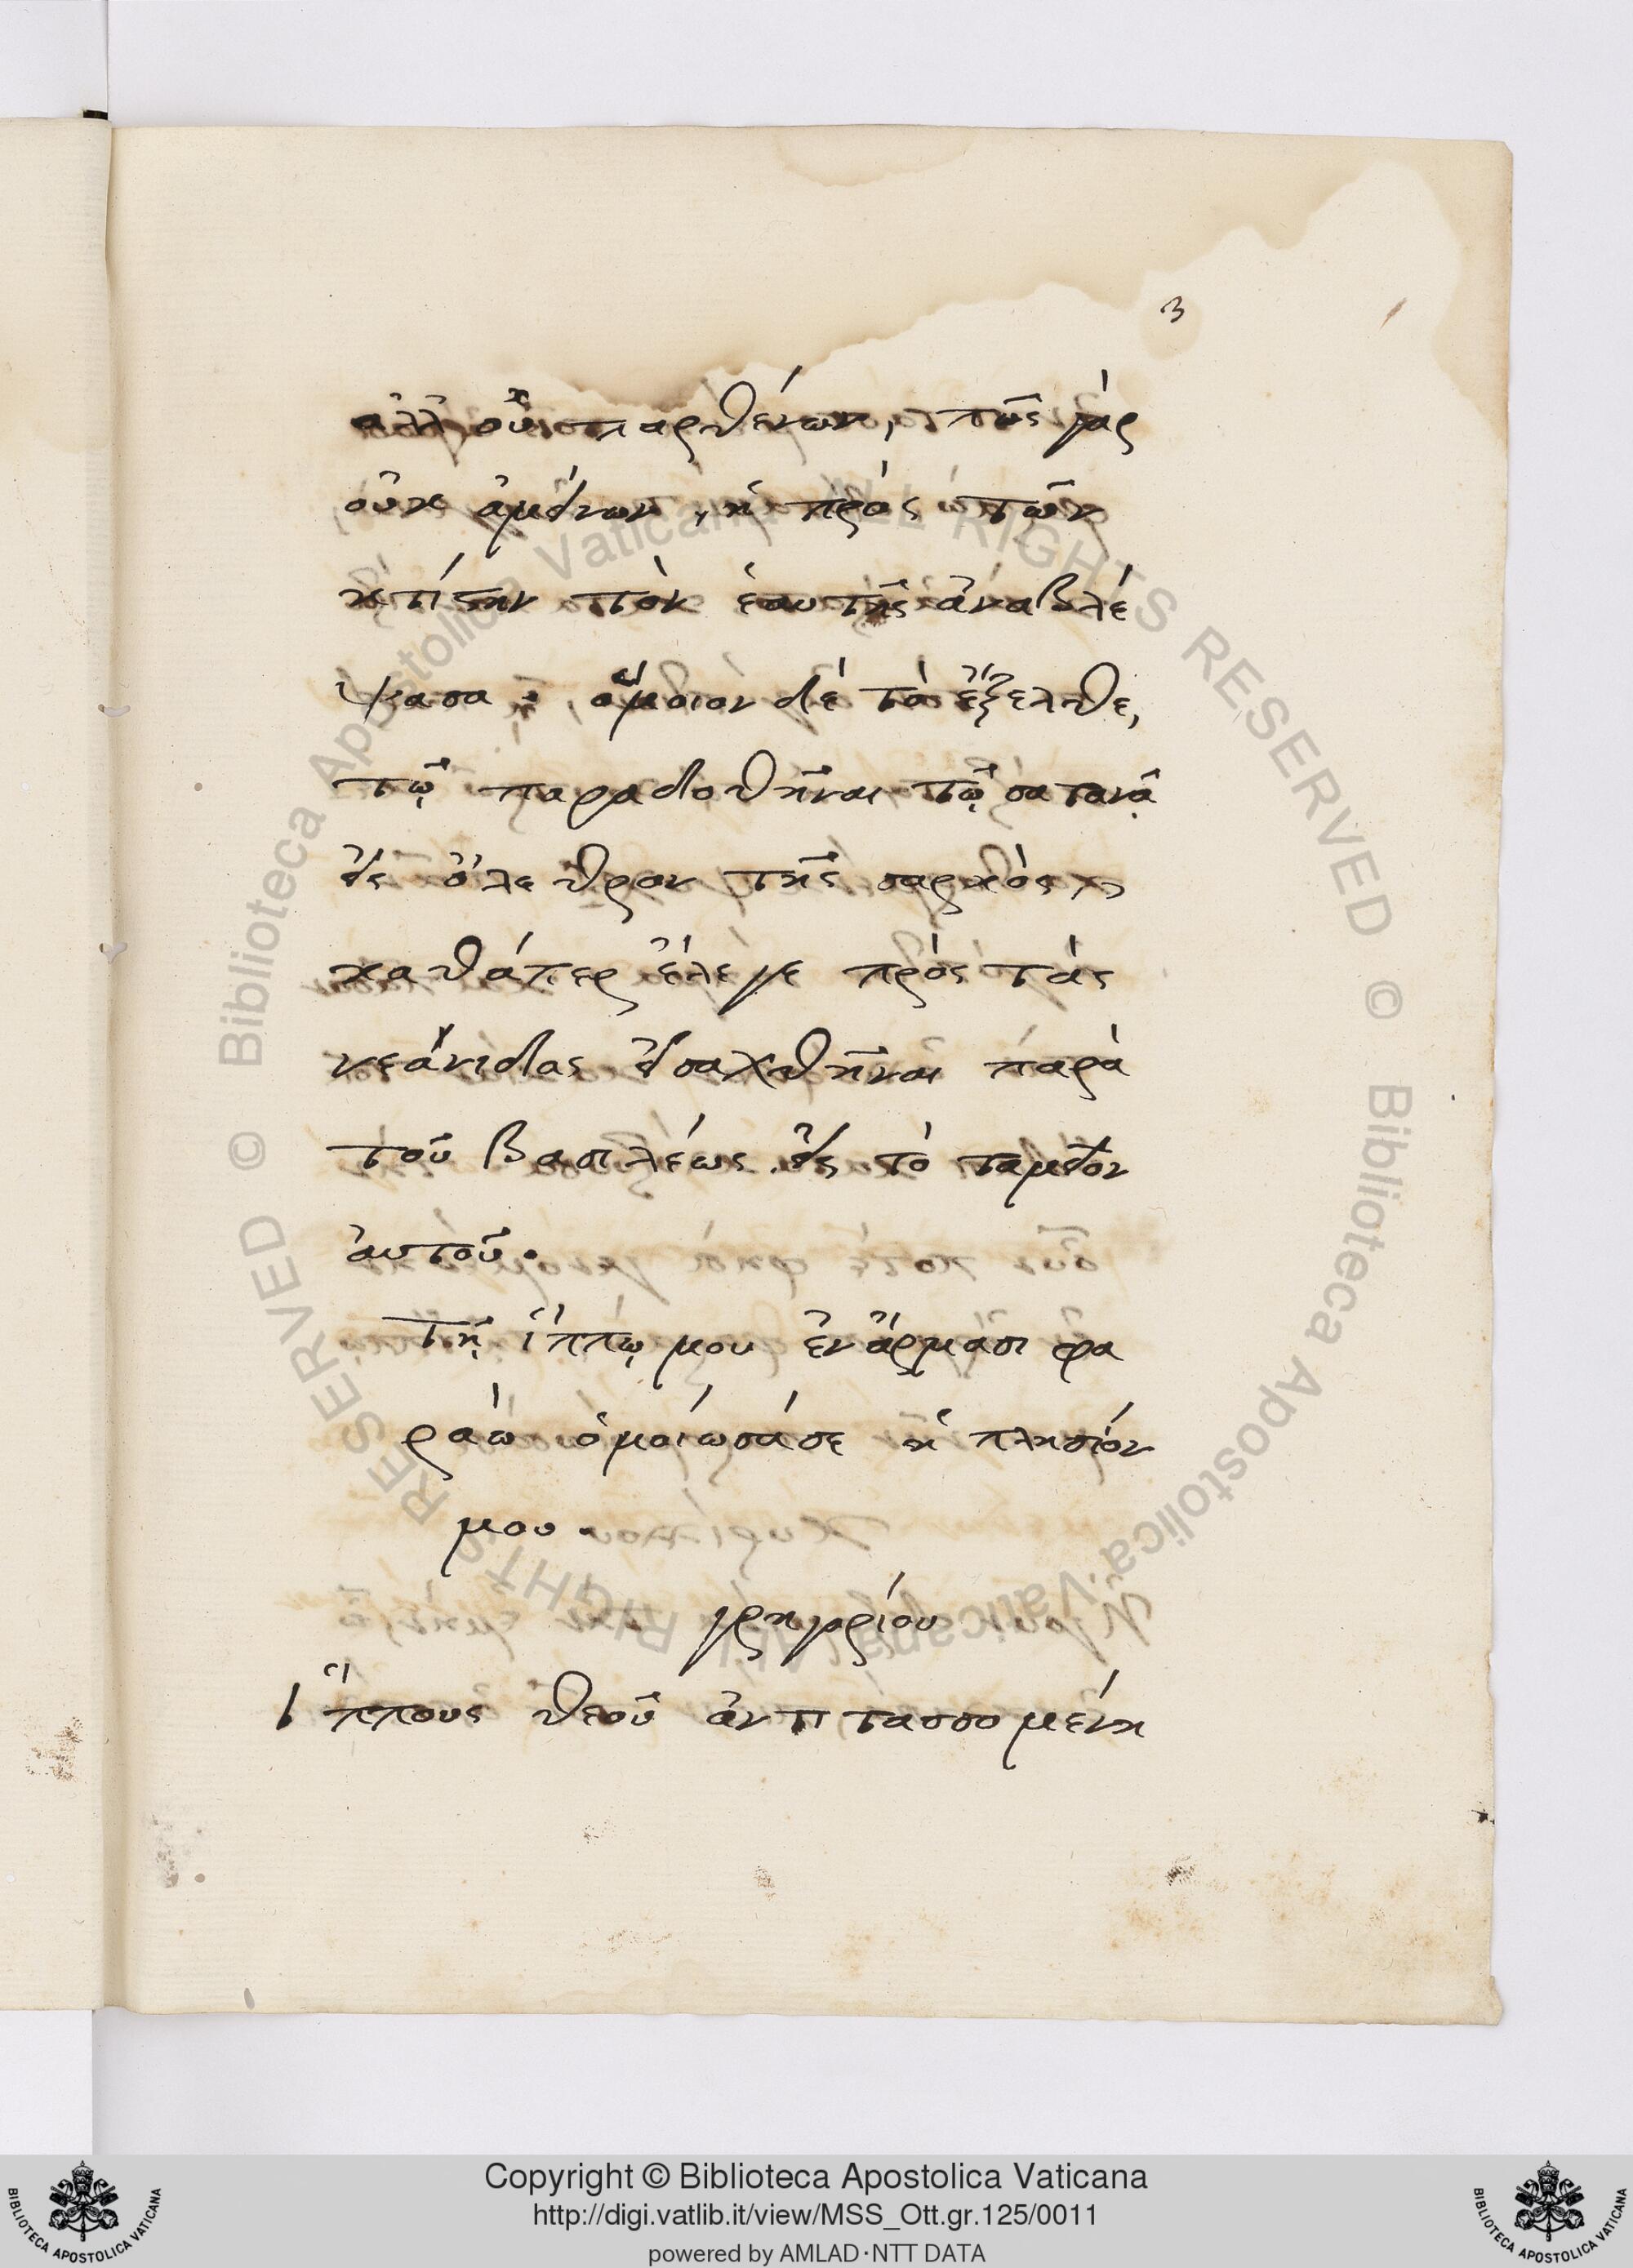 3
ἀλλ' οὐ παρθένων, πῶς γὰρ
οὐκ ἀμείνων, ἡ πρὸς τῶν
κτίστην τὸν ἑαυτῆς ἀναβλέ
ψασα· ὅμοιον δὲ τὸ ἔξελθε,
τῷ παραδοθῆναι τῷ σατανᾷ
εἰς ὄλεθρον τῆς σαρκὸς
καθάπερ ἔλεγε πρὸς τὰς
νεάνιδας εἰσαχθῆναι παρὰ
τοῦ βασιλέως εἰς τὸ ταμεῖον
ἀυτοῦ.
Τῇ ἵππῳ μου ἐν ἅρμασι φα
ραὼ ὁμοίωσά σε ἡ πλησίον
μου.
γρηγορίου
Ἵππους θεοῦ ἀντιτασσομένη
© Biblioteca Apostolica Vaticana ALL RIGHTS RESERVED © Biblioteca Apostolica Vaticana ALL RIGHTS RESERVED
BIBLIOTECA APOSTOLICA VATICANA
Copyright © Biblioteca Apostolica Vaticana
http://digi.vatlib.it/view/MSS_Ott.gr.125/0011
powered by AMLAD·NTT DATA
BIBLIOTECA APOSTOLICA VATICANA